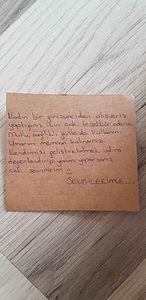 Kadın bir girişimciden alışveriş
yaptığınız için çok teşekkür ederim
Mutlu, sağlıklı günlerde kullanın.
Umarım memnun kalırsınız
Kendimizi geliştirebilmek adına
değerlendirip, yorum yaparsanız
çok sevinirim
SEVGİLERİMLE...